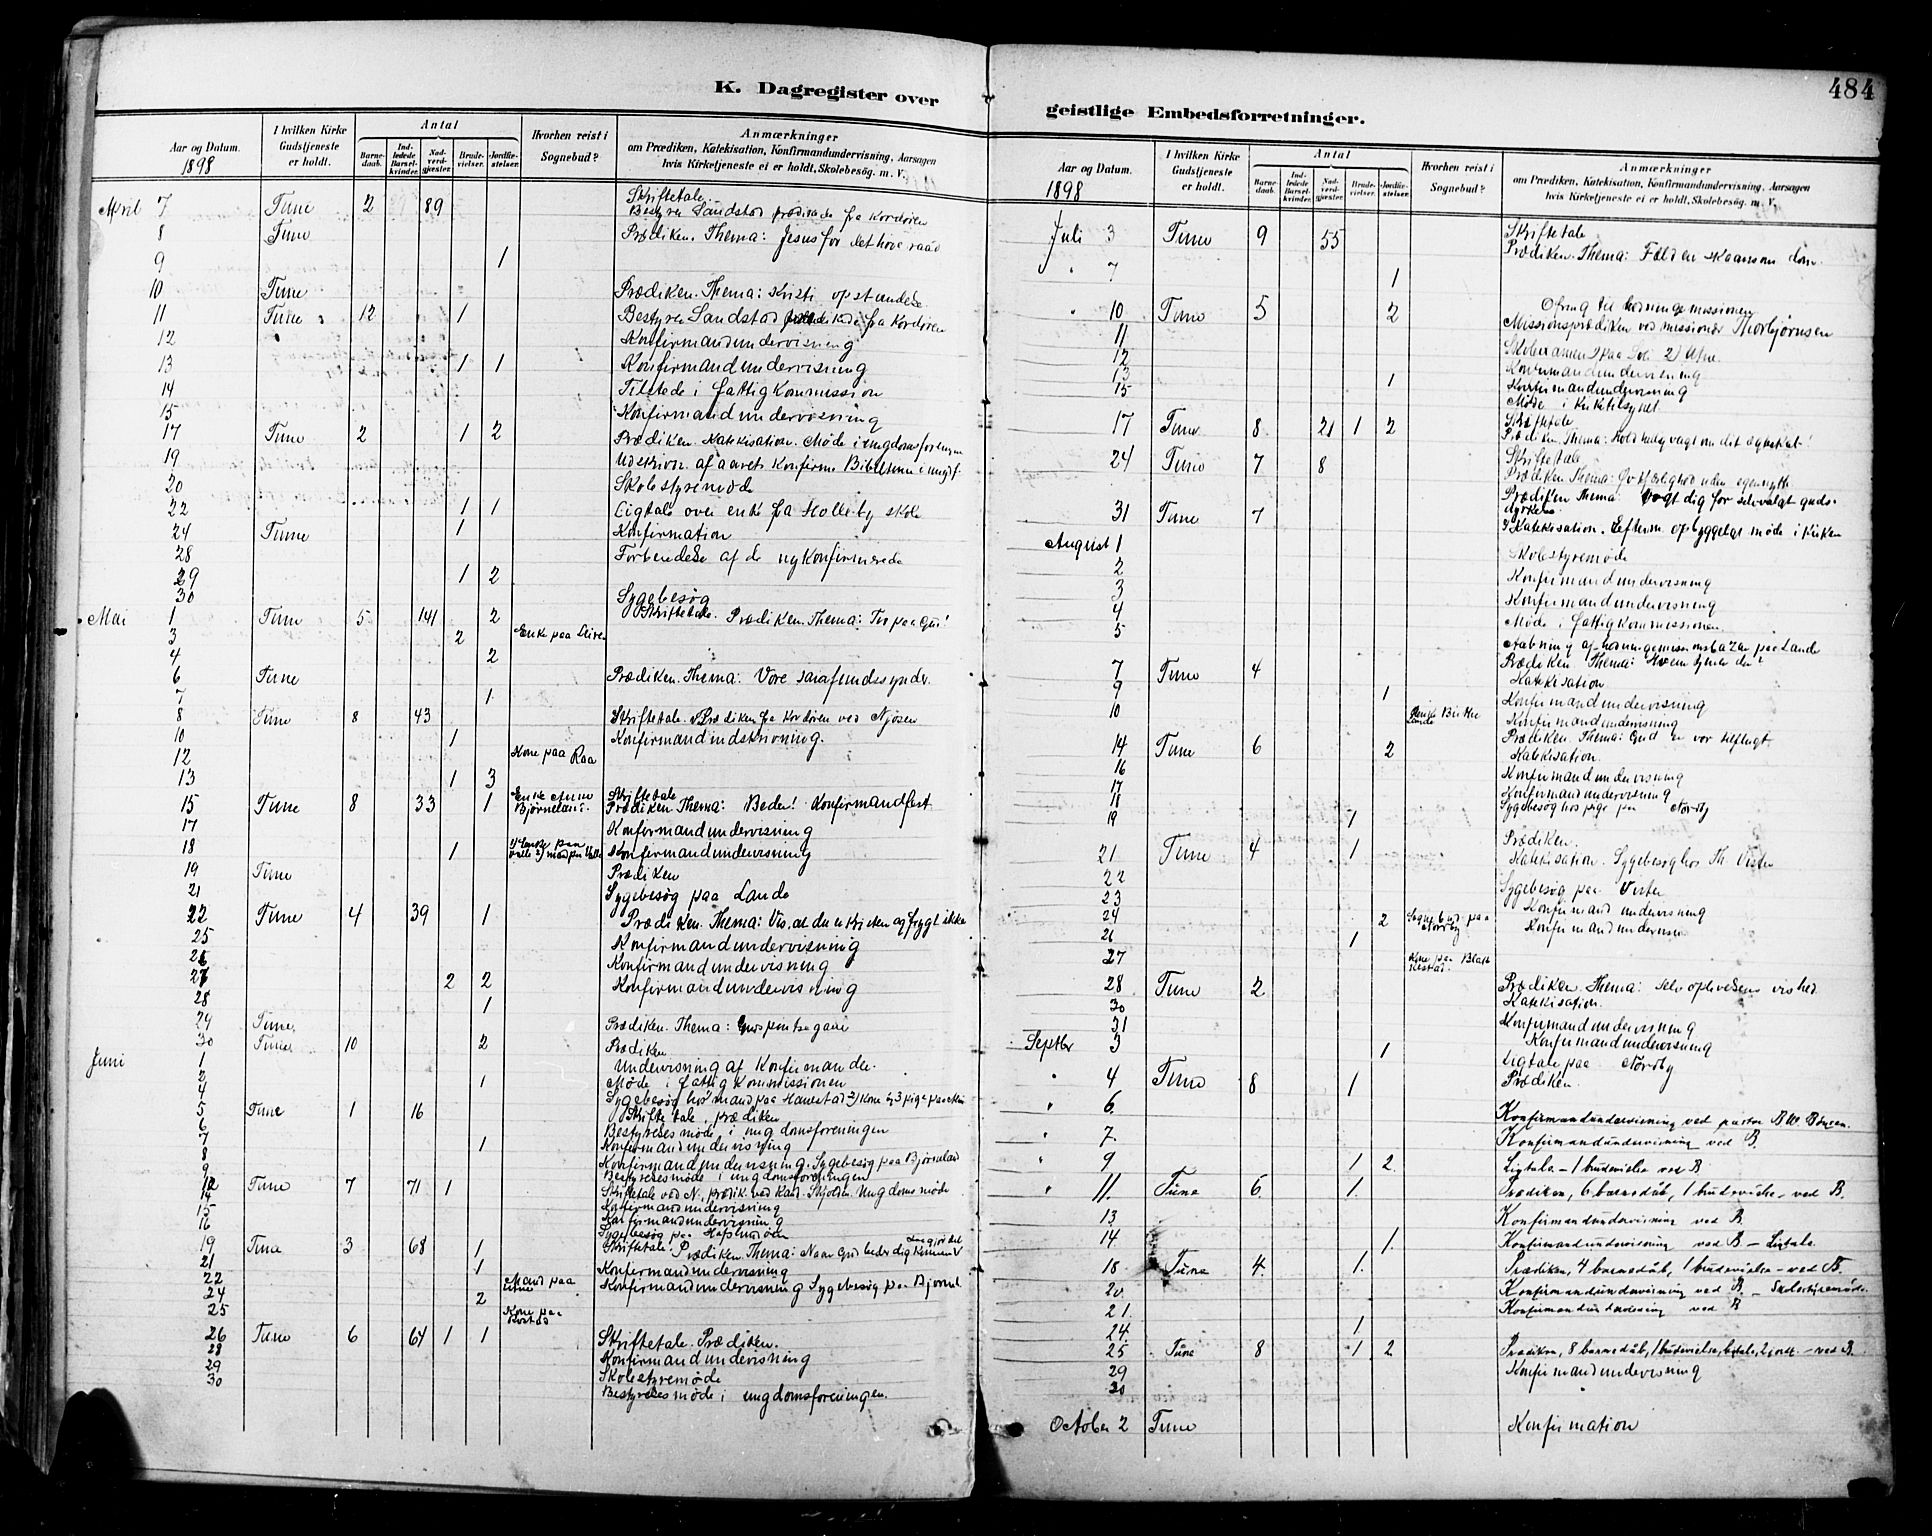 484
K. Dagregister over
Aar og Datum.
1898
I hvilken Kirke Gudstjeneste er holdt.
Antal
Barnedaab.
Indledede Barselkvinder.
Nadverdgjæster.
Brudevielser.
Jordfæstelser.
Hvorhen reist i Sognebud?
Anmærkninger
om Prædiken, Katekisation, Konfirmandundervisning, Aarsagen
hvis Kirketjeneste ei er holdt, Skolebesøg. m. V.
April 7 Tune 2 89 Skriftetale.
Bestyrer Sandstad prædikede fra Kordøren
8 Tune Prædiken. Thema: Jesus for det høie raad
9 1
10 Tune Prædiken. Thema: Kristi opstandelse
11 Tune 12 1 Bestyrer Sandstad fra Kordøren
12 Konfirmandundervisning
13 1 1 Konfirmandundervisning
14 Tilstede i fattigkommission
15 Konfirmandundervisning
17 Tune 2 1 2 Prædiken. Katekisation. Møde i ungdomsforeningen
19 af aarets Konfirm. Bibeltime i ungdf.
20 Skolestyremøde
22 1 1 Ligtale over enke fra Holleby skole
24 Tune 1 Konfirmation
28 af de nykonfirmerede
29 1 2
30 Sygebesøg
Mai 1 Tune 5 141 2 Skriftetale. Prædiken. Thema: Tro paa Gud!
3 2 Enke paa
4 2
6 Tune Prædiken. Thema: Vore samfundssynder
7 1
8 Tune 8 43 Skriftetale. Prædiken fra Kordøren ved Njøsen
10 1 Konfirmandindskrivning.
12 Kone paa Raa
13 1 3
15 Tune 8 33 1 Enke Anne Bjørneland. Skriftetale
Prædiken Thema: Beder! Konfirmandfest
17 Konfirmandundervisning
18 1 1) Enke paa Valle 2) mand paa Valle Konfirmandundervisning
19 Tune Prædiken
21 Sygebesøg paa Lande
22 Tune 4 39 1 Prædiken. Thema: og frygt ikke
25 Konfirmandundervisning
26 Konfirmandundervisning
27 2 2 Konfirmandundervisning
28 1
29 Tune Prædiken. Thema: pintsegave
30 Tune 10 2 Prædiken
Juni 1 Undervisning af Konfirmander.
2 1 Møde i fattigkommissionen
4 Sygebesøg hos mand paa Hannestad 2) kone og 3 pige paa
5 Tune 1 16 Skriftetale, prædiken
6 Bestyrelsesmøde i ungdomsforeningen
7 1 Konfirmandundervisning
8 Konfirmandundervisning. Sygebesøg paa Bjørneland
9 Bestyrelsesmøde i ungdomsforeningen
12 Tune 7 71 1 Skriftetale ved N., prædik. ved Kand. Skjolden. Ungdomsmøde
14 Konfirmandundervisning
15 Konfirmandundervisning
16 Sygebesøg paa Hafslundsøen
19 Tune 3 68 1 Skriftetale. Prædiken. Thema: Naar Gud beder dig komme
21 1 Konfirmandundervisning
22 Mand paa Konfirmandundervisning Sygebesøg paa Bjørnel.
24 2
25 Kone paa
26 Tune 6 64 1 1 Skriftetale. Prædiken.
28 Konfirmandundervisning
29 Skolestyremøde
30 Bestyrelsesmøde i ungdomsforeningen.
geistlige Embedsforretninger.
Aar og Datum.
1898
I hvilken Kirke Gudstjeneste er holdt.
Antal
Barnedaab.
Indledede Barselkvinder.
Nadverdgjæster.
Brudevielser.
Jordfæstelser.
Hvorhen reist i Sognebud?
Anmærkninger
om Prædiken, Katekisation, Konfirmandundervisning, Aarsagen
hvis Kirketjeneste ei er holdt, Skolebesøg. m. V.
Juli 3 Tune 9 55 Skriftetale
Prædiken. Thema: Fæld en skaansom dom
" 7 1
" 10 Tune 5 2 Ofring til hedningemissionen
Missionsprædiken ved missionær Thorbjørnsen
11 Skolexamen
12 Konfirmandundervisning
13 1 Konfirmandundervisning
15 Møde i
17 Tune 8 21 1 2 Skriftetale
Prædiken. Thema: Hold hellig vagt om dit ægteskab!
24 Tune 7 8 Skriftetale
Prædiken Thema: uden egennytte
31 Tune 7 Prædiken Thema: Vogt dig for selvvalgt gudsdyrkelse
Katekisation. Efterm. opbyggelsesmøde i kirken
August 1 Skolestyremøde
2 Konfirmandundervisning
3 Konfirmandundervisning
4 Møde i fattigkommissionen
5 Aabning af hedningemissionsbazar paa Lande
7 Tune 4 Prædiken Thema: Hvem tjener du?
Katekisation
9 1 Konfirmandundervisning
10 Konfirmandundervisning
14 Tune 6 2 Prædiken. Thema: Gud er vor tilflugt
Katekisation.
16 Konfirmandundervisning
17 Konfirmandundervisning
18 Sygebesøg hos pige paa Nordby
19 1
21 Tune 4 1 Prædiken.
Katekisation. Sygebesøg hos Th.
22 Sygebesøg paa
23 Konfirmandundervisning
24 2 Sognebud paa Nordby Konfirmandundervisn
26 1
27 Kone paa
28 Tune 2 Prædiken Thema: vished
Katekisation.
30 Konfirmandundervisning
31 Konfirmandundervisning
Septbr 3 1 Ligtale paa Nordby
" 4 Tune 8 1 Prædiken.
" 6. Konfirmandundervisning ved pastor
" 7. Konfirmandundervisning ved B.
" 9 1 2. Ligtale – 1 brudevielse ved B
" 11. Tune 6. 1. Prædiken, 6 barnedåb, 1 brudevielse – ved B.
13 Konfirmandundervisning ved B.
14. 1. Konfirmandundervisning ved B – Ligtale.
18 Tune 4. 1. Prædiken, 4 barnedåb, 1 brudevielse – ved B.
20 Konfirmandundervisning ved B. – Skolestyremøde.
21. Konfirmandundervisning ved B
24. 1
25 Tune 8 1 2 Prædiken, 8 barnedåb, 1 brudevielse, ligtale, 2 jordf. – ved B.
29 Konfirmandundervisning
30
October 2 Tune Konfirmation